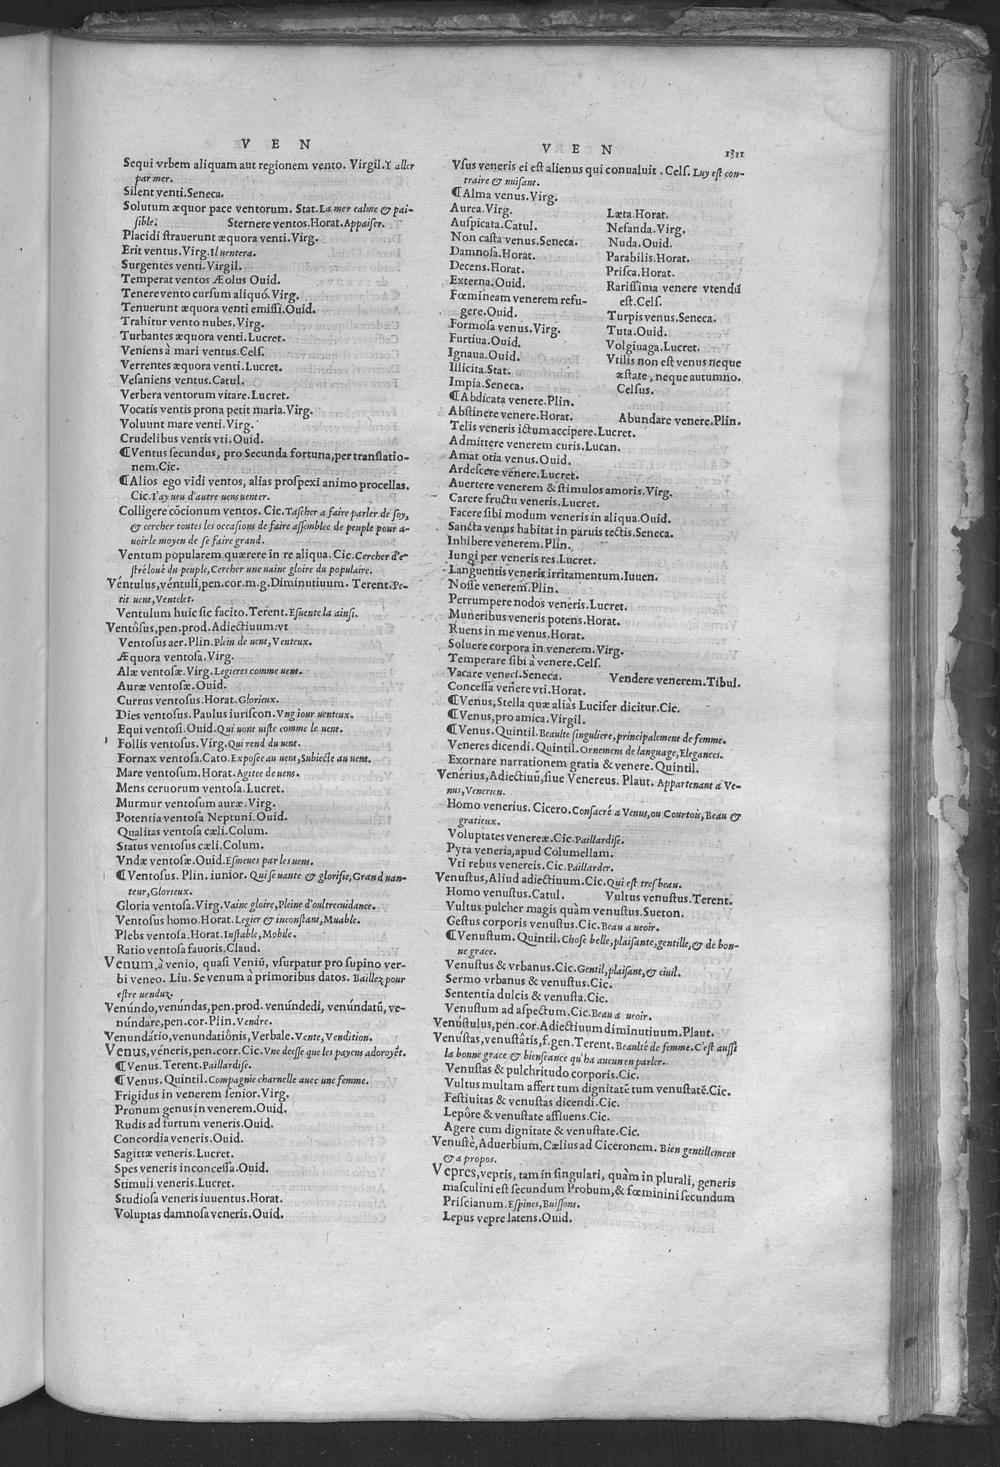 V E N
Sequi vrbem aliquam aut regionem vento. Virgil. Y aller
par mer.
Silent venti. Seneca.
Solutum æquor pace ventorum. Stat. La mer calme & pai-
sible. Sternere ventos. Horat. Appaiser.
Placidi strauerunt æquora venti. Virg.
Erit ventus. Virg. Il uentera.
Surgentes venti. Virgil.
Temperat ventos Æolus Ouid.
Tenere vento cursum aliquó. Virg.
Tenuerunt æquora venti emissi. Ouid.
Trahitur vento nubes. Virg.
Turbantes æquora venti. Lucret.
Veniens à mari ventus. Cels.
Verrentes æquora venti. Lucret.
Vesaniens ventus. Catul.
Verbera ventorum vitare. Lucret.
Vocatis ventis prona petit maria. Virg.
Voluunt mare venti. Virg.
Crudelibus ventis vti. Ouid.
¶ Ventus secundus, pro Secunda fortuna, per translatio-
nem. Cic.
¶ Alios ego vidi ventos, alias prospexi animo procellas.
Cic. I'ay ueu d'autre uens uenter.
Colligere cōcionum ventos. Cic. Tascher a faire parler de soy,
& cercher toutes les occasions de faire assemblee de peuple pour a-
uoir le moyen de se faire grand.
Ventum popularem quærere in re aliqua. Cic. Cercher d'e-
stré loué du peuple, Cercher une uaine gloire du populaire.
Véntulus, véntuli, pen. cor. m. g. Diminutiuum. Terent. Pe-
tit uent, Ventelet.
Ventulum huic sic facito. Terent. Esuente la ainsi.
Ventôsus, pen. prod. Adiectiuum: vt
Ventosus aer. Plin. Plein de uent, Venteux.
Æquora ventosa. Virg.
Alæ ventosæ. Virg. Legieres comme uent.
Auræ ventosæ. Ouid.
Currus ventosus. Horat. Glorieux.
Dies ventosus. Paulus iuriscon. Vng iour uenteux.
Equi ventosi. Ouid. Qui uont uiste comme le uent.
Follis ventosus. Virg. Qui rend du uent.
Fornax ventosa. Cato. Exposee au uent, Subiecte au uent.
Mare ventosum. Horat. Agitee de uens.
Mens ceruorum ventosa. Lucret.
Murmur ventosum auræ. Virg.
Potentia ventosa Neptuni. Ouid.
Qualitas ventosa cæli. Colum.
Status ventosus cæli. Colum.
Vndæ ventosæ. Ouid. Esmeues par les uens.
¶ Ventosus. Plin. iunior. Qui se uante & glorifie, Grand uan-
teur, Glorieux.
Gloria ventosa. Virg. Vaine gloire, Pleine d'oultrecuidance.
Ventosus homo. Horat. Legier & inconstant, Muable.
Plebs ventosa. Horat. Instable, Mobile.
Ratio ventosa fauoris. Claud.
Venum, à venio, quasi Veniū, vsurpatur pro supino ver-
bi veneo. Liu. Se venum à primoribus datos. Baillez pour
estre uenduz.
Venúndo, venúndas, pen. prod. venúndedi, venúndatū, ve-
núndare, pen. cor. Plin. Vendre.
Venundátio, venundatiônis, Verbale. Vente, Vendition.
Venus, véneris, pen. corr. Cic. Vne deesse que les payens adoroyẽt.
¶ Venus. Terent. Paillardise.
¶ Venus. Quintil. Compagnie charnelle auec une femme.
Frigidus in venerem senior. Virg.
Pronum genus in venerem. Ouid.
Rudis ad furtum veneris. Ouid.
Concordia veneris. Ouid.
Sagittæ veneris. Lucret.
Spes veneris inconcessa. Ouid.
Stimuli veneris. Lucret.
Studiosa veneris iuuentus. Horat.
Voluptas damnosa veneris. Ouid.
V E N 1311
Vsus veneris ei est alienus qui conualuit. Cels. Luy est con-
traire & nuisant.
¶ Alma venus. Virg.
Aurea. Virg. Læta. Horat.
Auspicata. Catul. Nefanda. Virg.
Non casta venus. Seneca. Nuda. Ouid.
Damnosa. Horat. Parabilis. Horat.
Decens. Horat. Prisca. Horat.
Externa. Ouid. Rarissima venere vtendū
Fœmineam venerem refu- est. Cels.
gere. Ouid. Turpis venus. Seneca.
Formosa venus. Virg. Tuta. Ouid.
Furtiua. Ouid. Volgiuaga. Lucret.
Ignaua. Ouid. Vtilis non est venus neque
Illicita. Stat. æstate, neque autumno.
Impia. Seneca. Celsus.
¶ Abdicata venere. Plin.
Abstinere venere. Horat. Abundare venere. Plin.
Telis veneris ictum accipere. Lucret.
Admittere venerem curis. Lucan.
Amat otia venus. Ouid.
Ardescere venere. Lucret.
Auertere venerem & stimulos amoris. Virg.
Carere fructu veneris. Lucret.
Facere sibi modum veneris in aliqua. Ouid.
Sancta venus habitat in paruis tectis. Seneca.
Inhibere venerem. Plin.
Iungi per veneris res. Lucret.
Languentis veneris irritamentum. Iuuen.
Nosse venerem. Plin.
Perrumpere nodos veneris. Lucret.
Muneribus veneris potens. Horat.
Ruens in me venus. Horat.
Soluere corpora in venerem. Virg.
Temperare sibi à venere. Cels.
Vacare veneri. Seneca. Vendere venerem. Tibul.
Concessa venere vti. Horat.
¶ Venus, Stella quæ aliàs Lucifer dicitur. Cic.
¶ Venus, pro amica. Virgil.
¶ Venus. Quintil. Beaulte singuliere, principalement de femme.
Veneres dicendi. Quintil. Ornemens de language, Elegances.
Exornare narrationem gratia & venere. Quintil.
Venérius, Adiectiuū, siue Venereus. Plaut. Appartenant à Ve-
nus, Venerien.
Homo venerius. Cicero. Consacré a Venus, ou Courtois, Beau &
gratieux.
Voluptates venereæ. Cic. Paillardise.
Pyra veneria, apud Columellam.
Vti rebus venereis. Cic. Paillarder.
Venustus, Aliud adiectiuum. Cic. Qui est tresbeau.
Homo venustus. Catul. Vultus venustus. Terent.
Vultus pulcher magis quàm venustus. Sueton.
Gestus corporis venustus. Cic. Beau a ueoir.
¶ Venustum. Quintil. Chose belle, plaisante, gentille, & de bon-
ne grace.
Venustus & vrbanus. Cic. Gentil, plaisant, & ciuil.
Sermo vrbanus & venustus. Cic.
Sententia dulcis & venusta. Cic.
Venustum ad aspectum. Cic. Beau a ueoir.
Venústulus, pen. cor. Adiectiuum diminutiuum. Plaut.
Venústas, venustâtis, f. gen. Terent. Beaulté de femme. C'est aussi
la bonne grace & bienseance qu'ha aucun en parler.
Venustas & pulchritudo corporis. Cic.
Vultus multam affert tum dignitatē tum venustatē. Cic.
Festiuitas & venustas dicendi. Cic.
Lepôre & venustate affluens. Cic.
Agere cum dignitate & venustate. Cic.
Venustè, Aduerbium. Cælius ad Ciceronem. Bien gentillement
& a propos.
Vepres, vepris, tam in singulari, quàm in plurali, generis
masculini est secundum Probum, & fœminini secundum
Priscianum. Espines, Buissons.
Lepus vepre latens. Ouid.